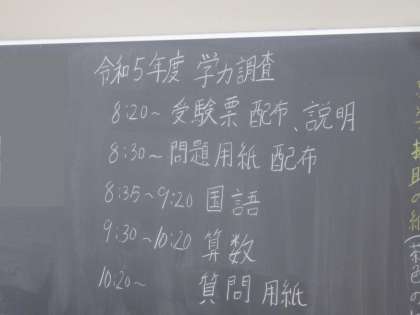 令和5年度 学力調査
8:20~ 受験票 配布、説明
8:30~ 問題用紙 配布
8:35~9:20 国語
9:30~10:20 算数
10:20~ 質問用紙